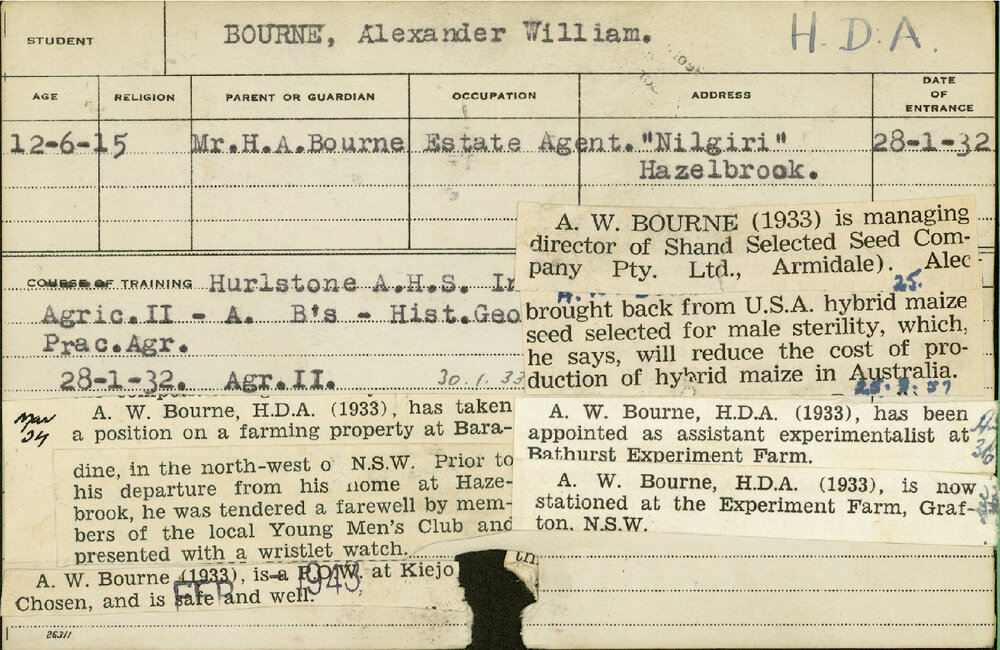 STUDENT BOURNE, Alexander William. H.D.A.
AGE RELIGION PARENT OR GUARDIAN OCCUPATION ADDRESS DATE OF ENTRANCE
12-6-15 Mr.H.A.Bourne Estate Agent. "Nilgiri" 28-1-32
Hazelbrook.
A. W. BOURNE (1933) is managing
director of Shand Selected Seed Com-
pany Pty. Ltd., Armidale). Alec
25.
brought back from U.S.A. hybrid maize
seed selected for male sterility, which,
he says, will reduce the cost of pro-
duction of hybrid maize in Australia.
COURSE OF TRAINING Hurlstone A.H.S.
Agric.II - A. B's - Hist.Geo
Prac.Agr.
28-1-32. Agr.II. 30.1.33
Mar
A. W. Bourne, H.D.A. (1933), has taken
a position on a farming property at Bara-
dine, in the north-west o N.S.W. Prior to
his departure from his home at Haze-
brook, he was tendered a farewell by mem-
bers of the local Young Men's Club and
presented with a wristlet watch.
A. W. Bourne, H.D.A. (1933), has been
appointed as assistant experimentalist at
Bathurst Experiment Farm.
36
A. W. Bourne, H.D.A. (1933), is now
stationed at the Experiment Farm, Graf-
ton, N.S.W.
th
A. W. Bourne (1933), is a P.O.W. at Kiejo
Chosen, and is safe and well.
FEB 1943
26311